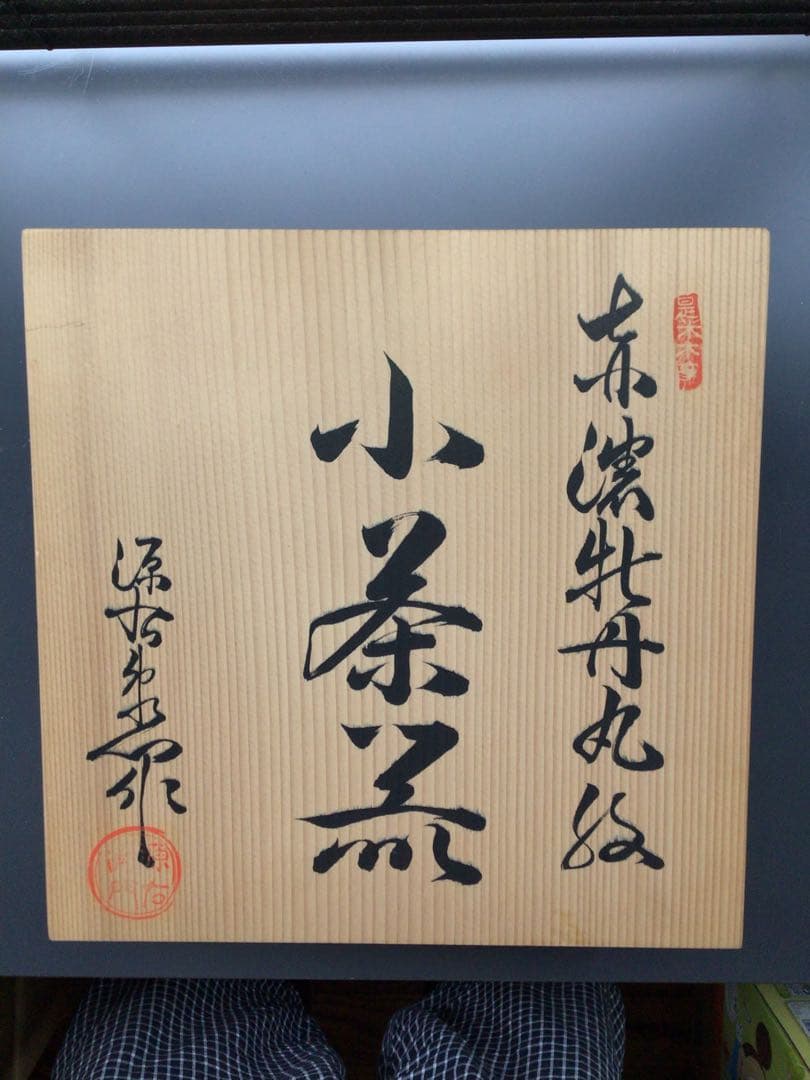 赤濃牡丹丸紋
小茶器
源右衛門作
源右